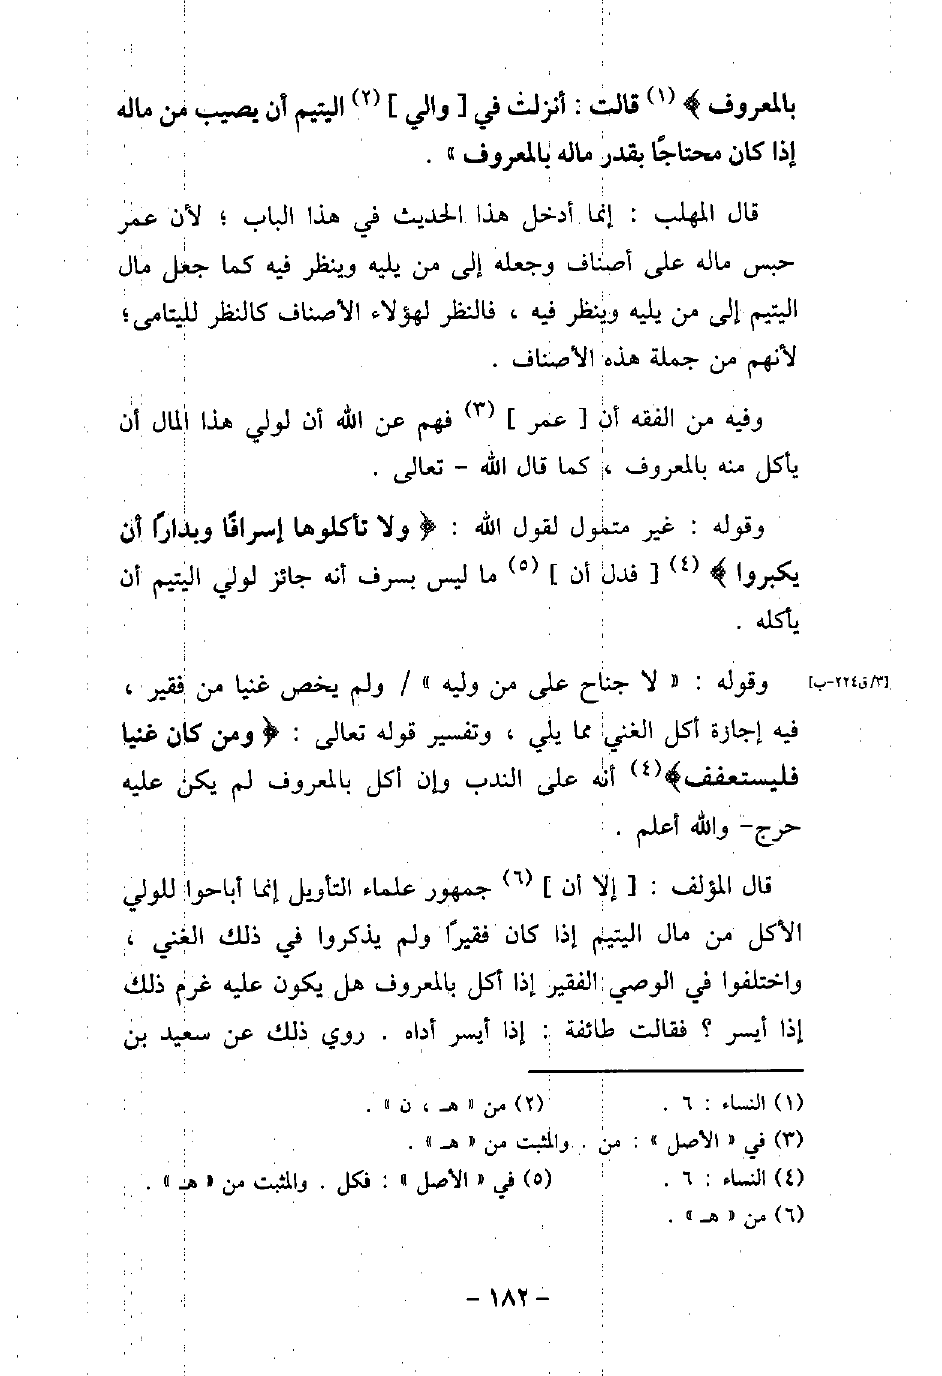 بالمعروف ﴾ (١) قالت : أنزلت في [ والي ] (٢) اليتيم أن يصيب من ماله
إذا كان محتاجًا بقدر ماله بالمعروف » .
قال المهلب : إنما أدخل هذا الحديث في هذا الباب ؛ لأن عمر
حبس ماله على أصناف وجعله إلى من يليه وينظر فيه كما جعل مال
اليتيم إلى من يليه وينظر فيه ، فالنظر لهؤلاء الأصناف كالنظر لليتامى ؛
لأنهم من جملة هذه الأصناف .
وفيه من الفقه أن [ عمر ] (٣) فهم عن الله أن لولي هذا المال أن
يأكل منه بالمعروف ، كما قال الله – تعالى .
وقوله : غير متمول لقول الله : ﴿ ولا تأكلوها إسرافًا وبدارًا أن
يكبروا ﴾ (٤) [ فدل أن ] (٥) ما ليس بسرف أنه جائز لولي اليتيم أن
يأكله .
وقوله : « لا جناح على من وليه » / ولم يخص غنيا من فقير ، [٣/ق٢٢٤-ب]
فيه إجازة أكل الغني مما يلي ، وتفسير قوله تعالى : ﴿ ومن كان غنيا
فليستعفف﴾ (٤) أنه على الندب وإن أكل بالمعروف لم يكن عليه
حرج– والله أعلم .
قال المؤلف : [ إلا أن ] (٦) جمهور علماء التأويل إنما أباحوا للولي
الأكل من مال اليتيم إذا كان فقيرًا ولم يذكروا في ذلك الغني ،
واختلفوا في الوصي الفقير إذا أكل بالمعروف هل يكون عليه غرم ذلك
إذا أيسر ؟ فقالت طائفة : إذا أيسر أداه . روي ذلك عن سعيد بن
(١) النساء : ٦ . (٢) من « هـ ، ن » .
(٣) في « الأصل » : من . والمثبت من « هـ » .
(٤) النساء : ٦ . (٥) في « الأصل » : فكل . والمثبت من « هـ » .
(٦) من « هـ » .
– ١٨٢ –